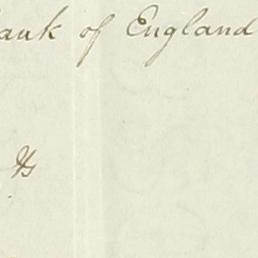 ank of England